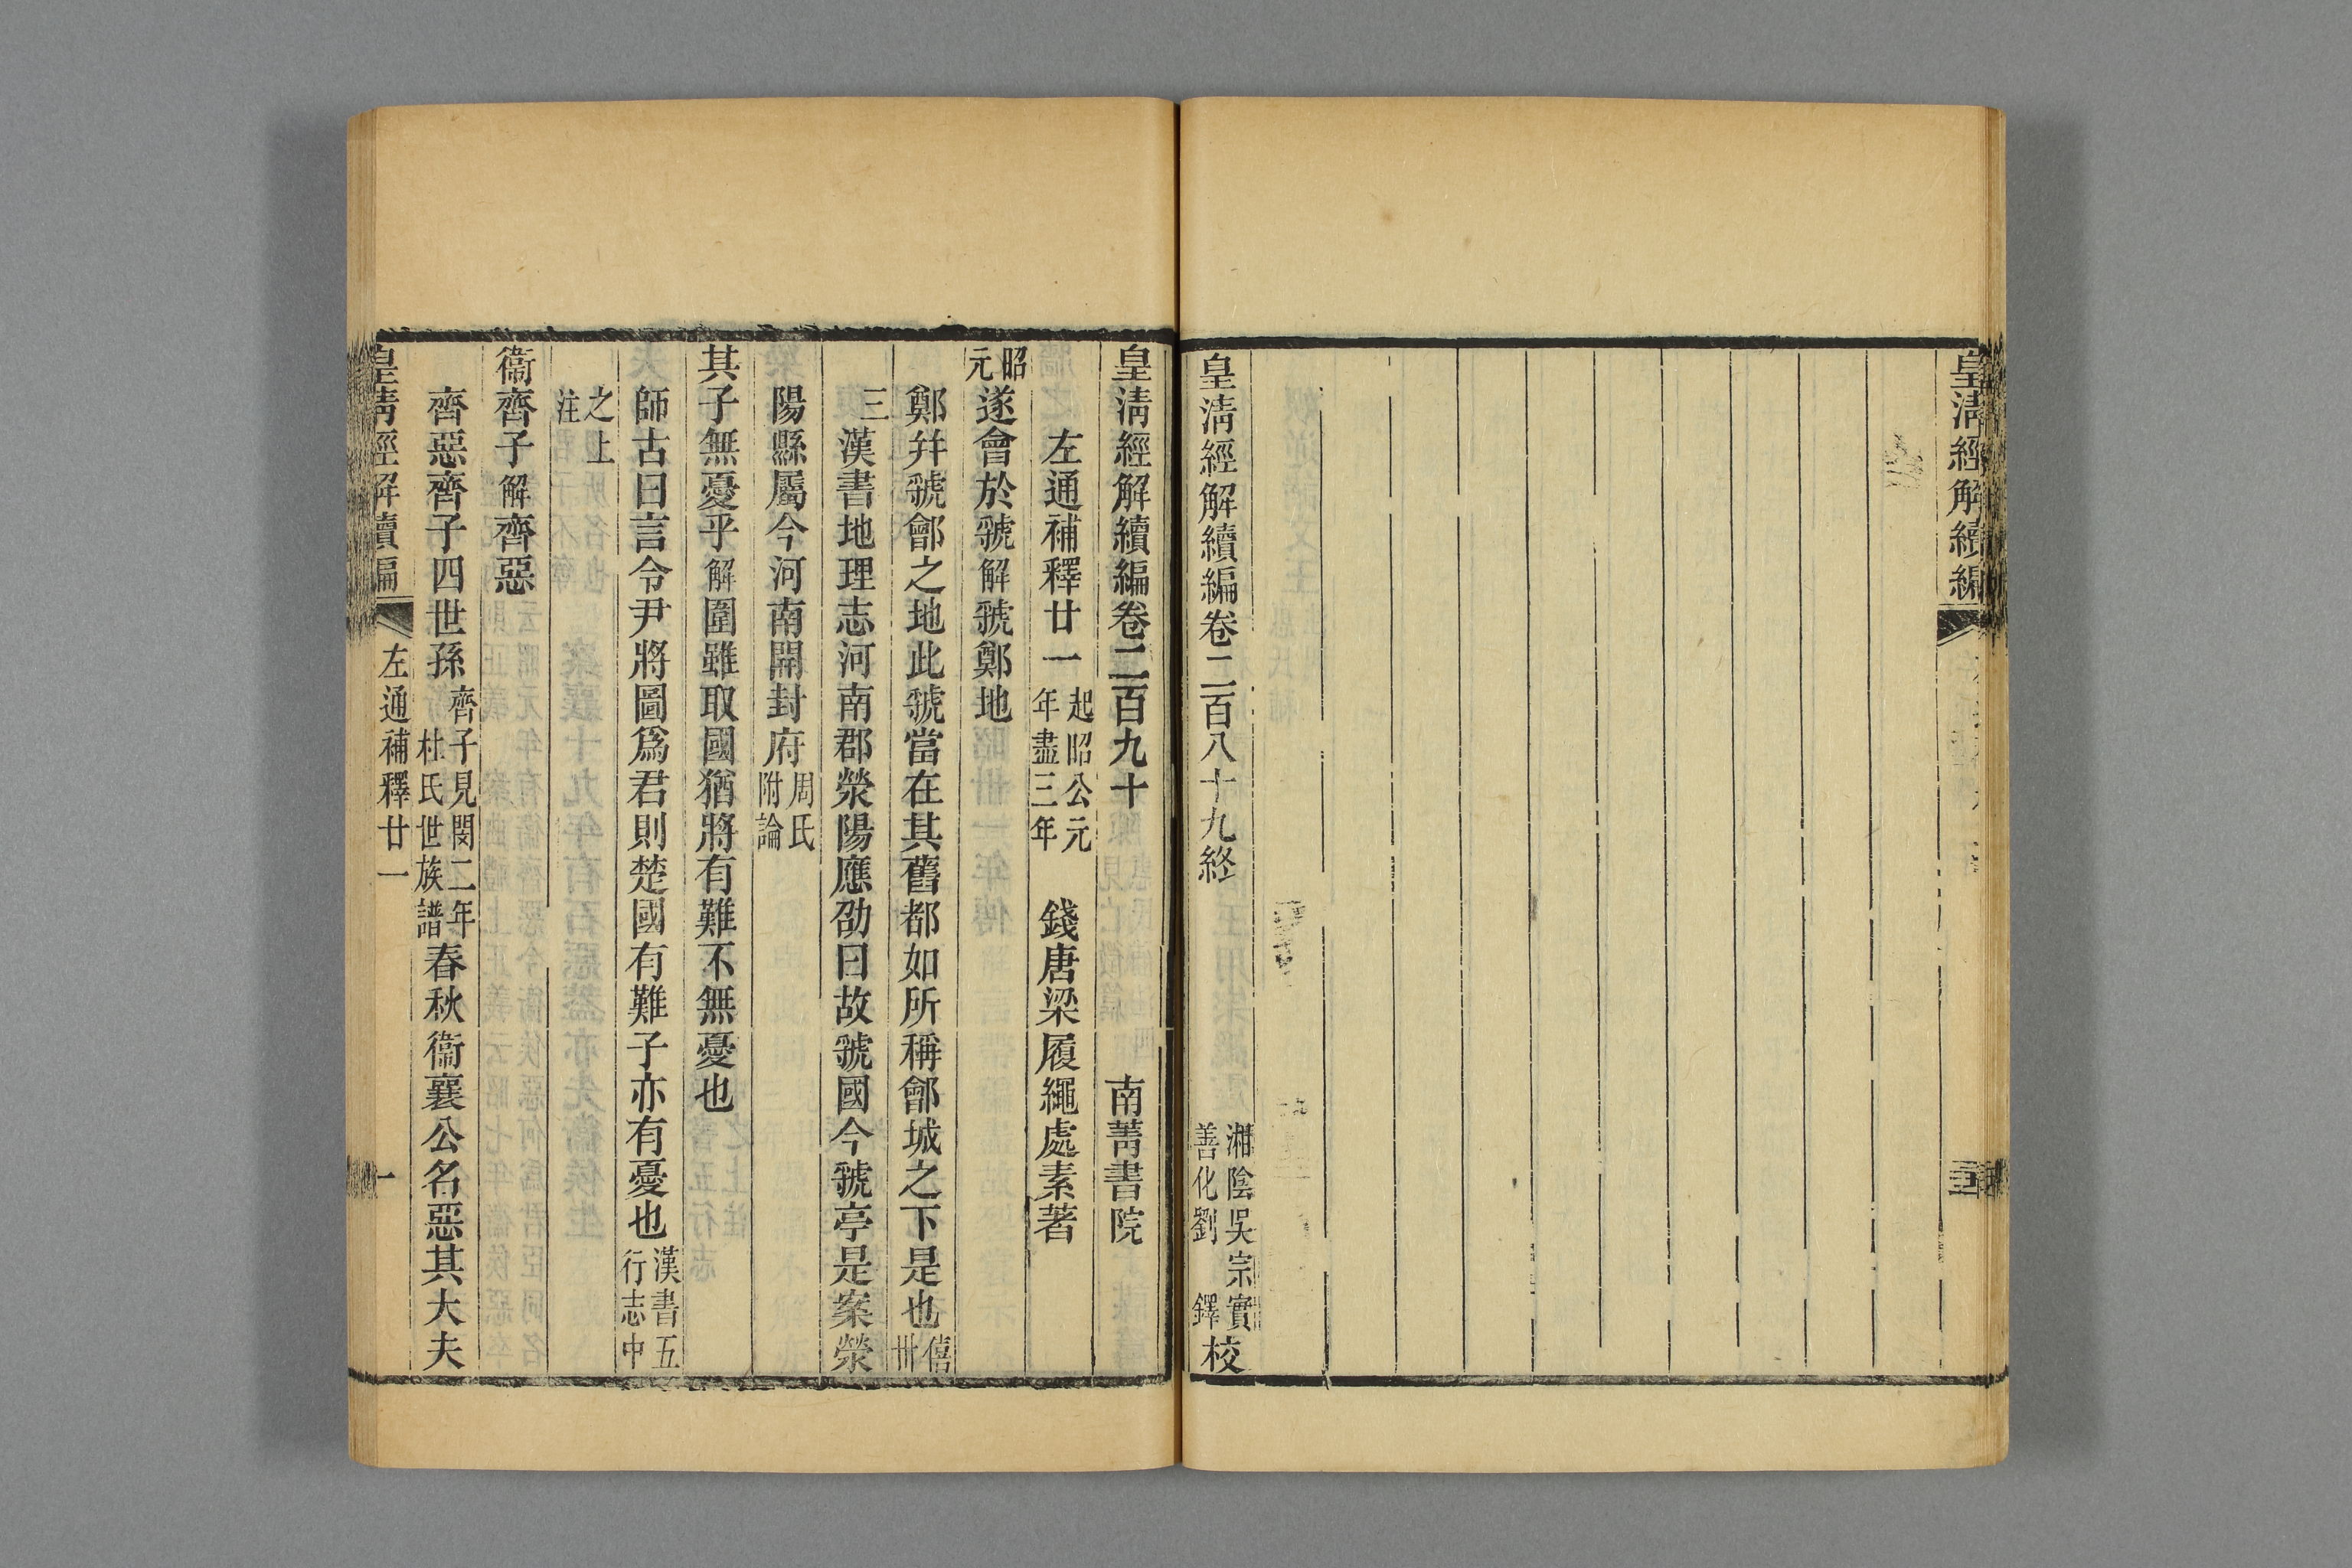 皇清經解續編
皇清經解續編卷二百八十九終
湘陰吳宗實
善化劉　鐸
校
皇清經解續編卷二百九十
南菁書院
左通補釋廿一
起昭公元
年盡三年
錢唐梁履繩處素著
昭
元
遂會於虢解虢鄭地
鄭幷虢鄶之地此虢當在其舊都如所稱鄶城之下是也
僖
卅
三
漢書地理志河南郡滎陽應劭曰故虢國今虢亭是案滎
陽縣屬今河南開封府
周氏
附論
其子無憂乎解圍雖取國猶將有難不無憂也
師古曰言令尹將圖爲君則楚國有難子亦有憂也
漢書五
行志中
之上
注
衞齊子解齊惡
齊惡齊子四世孫
齊子見閔二年
杜氏世族譜
春秋衞襄公名惡其大夫
皇清經解續編
左通補釋廿一
一